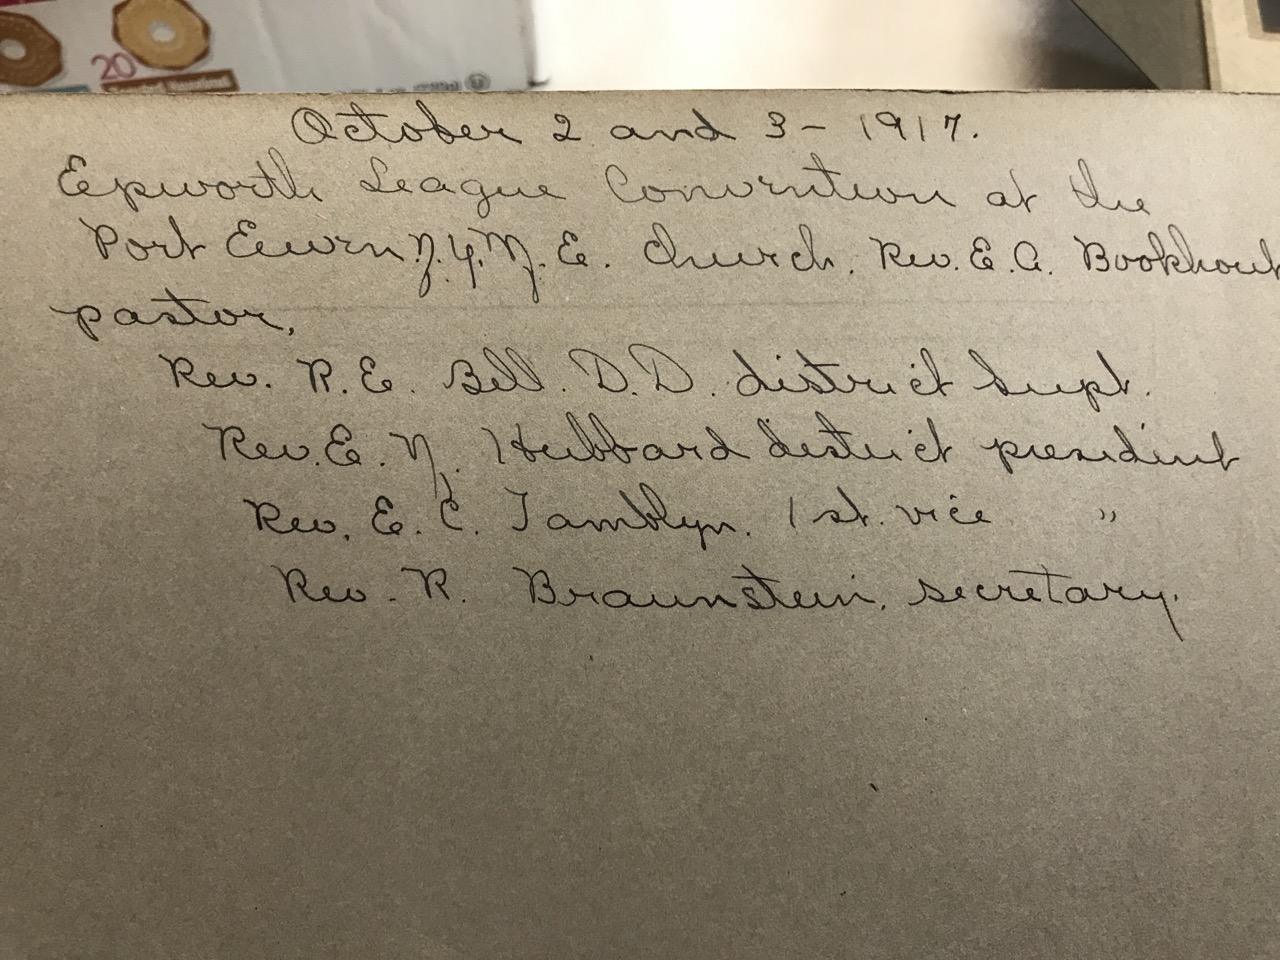 20
October 2 and 3 - 1917.
Epworth League Convention at the
Port Ewen N.Y. M.E. church. Rev. E. A. Bookhout
pastor,
Rev. R. E. Bell. D.D. district Supt.
Rev. E. N. Hubbard district president
Rev. E. C. Tamblyn. 1st. vice "
Rev. R. Braunstein. secretary.